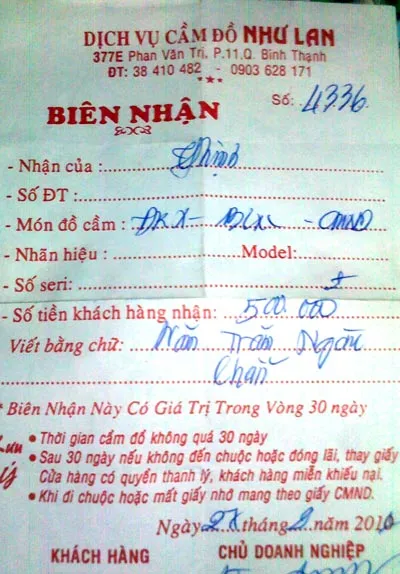 DỊCH VỤ CẦM ĐỒ NHƯ LAN
377E Phan Văn Trị, P.11,Q. Bình Thạnh
ĐT: 38 410 482 - 0903 628 171
Số: 4336
BIÊN NHẬN
- Nhận của : Thịnh
- Số ĐT :
- Món đồ cầm : ĐKX - BLX - CMND
- Nhãn hiệu : Model:
- Số seri:
- Số tiền khách hàng nhận: 500.000
Viết bằng chữ: Năm Trăm Ngàn
Chẵn
* Biên Nhận Này Có Giá Trị Trong Vòng 30 ngày
Lưu ý
• Thời gian cầm đồ không quá 30 ngày
• Sau 30 ngày nếu không đến chuộc hoặc đóng lãi, thay giấy
Cửa hàng có quyền thanh lý, khách hàng miễn khiếu nại.
• Khi đi chuộc hoặc mất giấy nhớ mang theo giấy CMND.
Ngày tháng 2 năm 2010
KHÁCH HÀNG CHỦ DOANH NGHIỆP